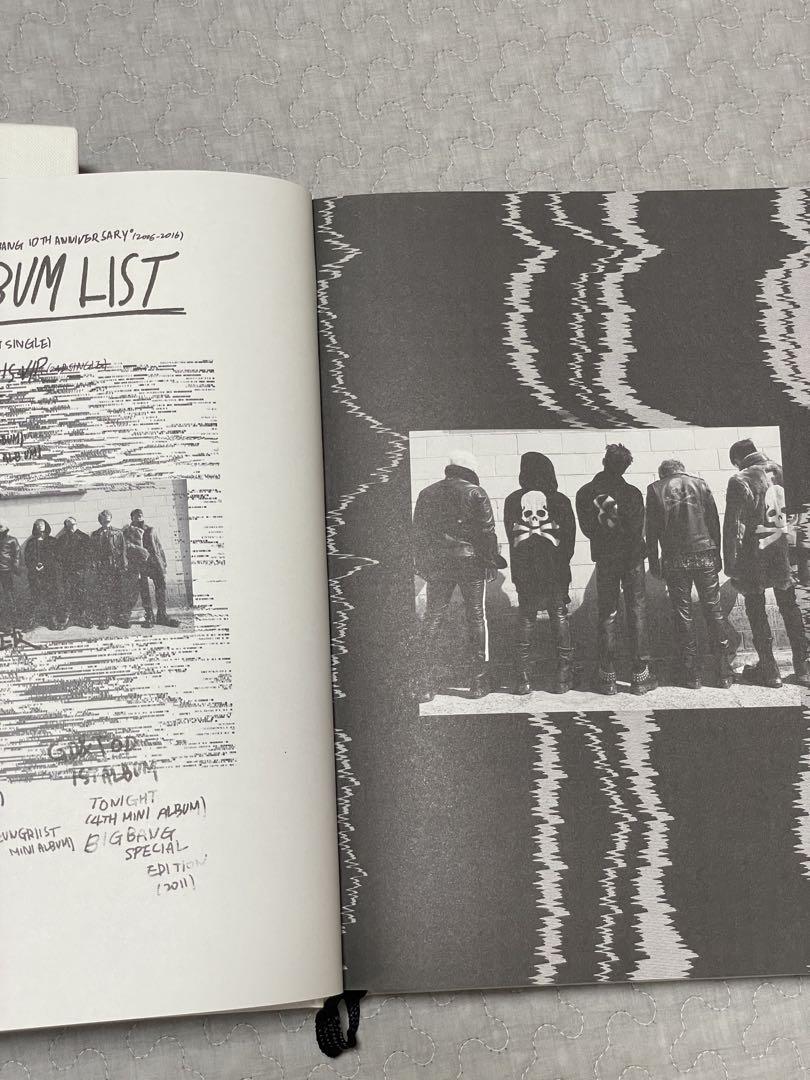 ANG 10TH ANNIVERSARY" (2006-2016)
BUM LIST
T SINGLE)
IS VIP (2ND SINGLE)
BUM)
ALBUM)
ER
GD&TOP
1ST ALBUM
)
TONIGHT
(4TH MINI ALBUM)
EUNGRI1ST
MINI ALBUM)
BIGBANG
SPECIAL
EDITION
(2011)